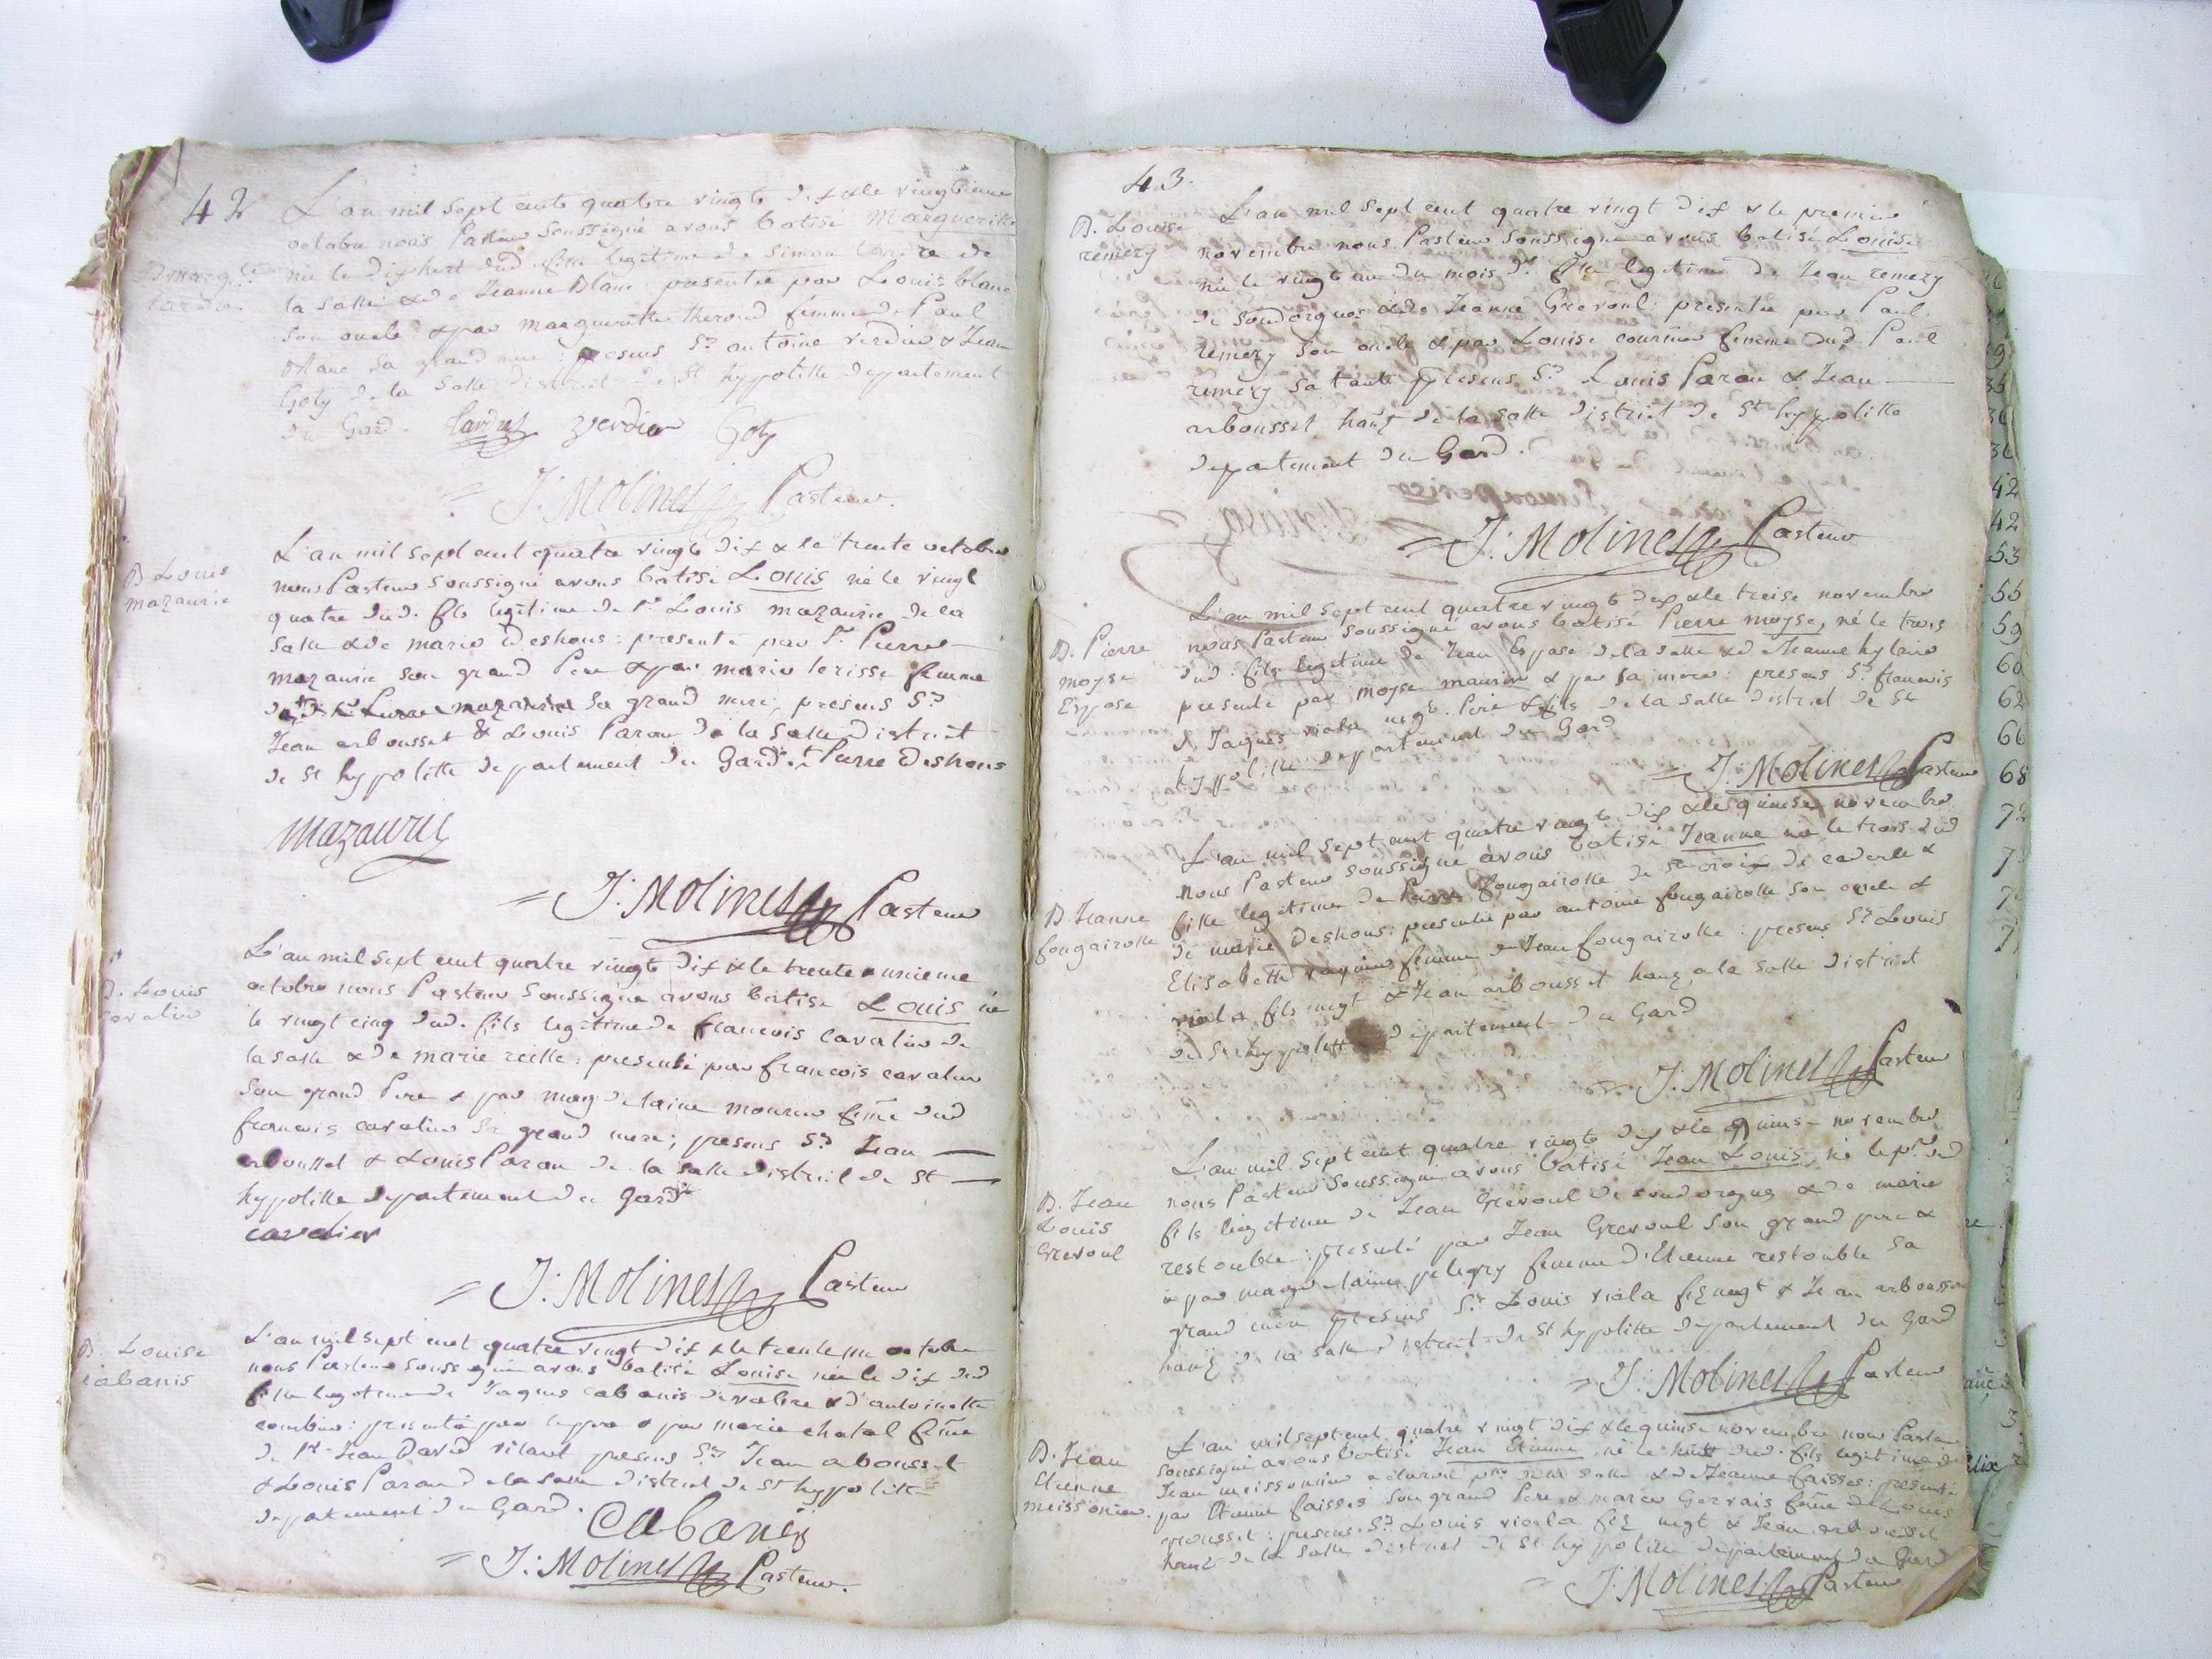 42
L'an mil sept cents quatre vingts dix & le vingtieme
octobre nous Pasteur soussigné avons batisé Marguerite
née le dixhuit dud. fille legitime de Simon de
la salle & de Jeanne Blanc : presentée par Louis blanc
son oncle & par marguerite theroud femme de Paul
blanc sa grand mere : presens Srs antoine verdier & Jean
Goty de la salle district de St hypolitte departement
du Gard. verdier Goty
= J: Molines Pasteur.
B Louis
mazauric
L'an mil sept cent quatre vingts dix & le trente octobre
nous Pasteur soussigné avons batisé Louis né le vingt
quatre dud. fils legitime de Sr Louis mazauric de la
salle & de marie Deshons : presenté par Sr Pierre
mazauric son grand Pere & par marie lorisse femme
mazauric sa grand mere, presens Srs
Jean arbousset & Louis Paran de la salle District
de St hypolitte departement du Gard & Pierre Deshons
Mazauric
= J: Molines Pasteur
B. Louis
Cavalier
L'an mil sept cent quatre vingts dix & le trente unieme
octobre nous Pasteur soussigné avons batisé Louis né
le vingt cinq dud. fils legitime de francois Cavalier de
la salle & de marie reille : presenté par francois cavalier
son grand Pere & par magdelaine mourier feme dud
francois cavalier sa grand mere ; presens Srs Jean
arbousset & Louis Paran de la salle district de St
hypolitte departement du Gard
cavalier
= J: Molines Pasteur
B. Louise
Cabanis
L'an mil sept cent quatre vingt dix & le trente un octobre
nous Pasteur soussigné avons batisé Louise née le dix dud
fille legitime de Jaques Cabanis de valere & d'antoinette
: presentée par & par marie chatal feme
de Sr Jean David presens Srs Jean arbousset
& Louis Paran de la salle District de St hypolitte
departement du Gard.
Cabanis
= J: Molines Pasteur.
43.
B. Louise
remezy
L'an mil sept cent quatre vingt dix & le premier
novembre nous Pasteur soussigné avons batisé Louise
née le vingt un du mois fille legitime de Jean remezy
de Soudorgues & de Jeanne Grevoul : presentée par Paul
remezy son oncle & par Louise femme dud. Paul
remezy sa tante presens Srs Louis Paran & Jean
arbousset de la salle district de St hypolitte
departement du Gard.
= J: Molines Pasteur
B. Pierre
moyse
Espase
L'an mil sept cent quatre vingts dix & le treise novembre
nous Pasteur soussigné avons batisé Pierre moyse, né le trois
dud. fils legitime de Jean Espase de la salle & de Jeanne hylaire
presenté par moyse maurin & par sa mere : presens Srs francois
& Jaques viala negts. Pere & fils de la salle district de St
hypolitte departement du Gard
= J: Molines Pasteur
B Jeanne
fougairolle
L'an mil sept cent quatre vingts dix & le quinse novembre
nous Pasteur soussigné avons batisé Jeanne née le trois dud
fille legitime de Pierre fougairolle de Ste croix de caderle &
de marie Deshons : presentée par antoine fougairolle son oncle &
Elisabeth femme de Jean fougairolle : presens Srs Louis
viala fils negt & Jean arbousset a la salle District
de St hypolitte departement du Gard
J: Molines Pasteur
B. Jean
Louis
Grevoul
L'an mil sept cent quatre vingts dix & le quinse novembre
nous Pasteur soussigné avons batisé Jean Louis né le pr. dud
fils legitime de Jean Grevoul de soudorgues & de marie
restouble : presenté par Jean Grevoul son grand pere &
& par magdelaine pelegry femme d'Etienne restouble sa
grand mere presens Srs Louis viala fils negt & Jean arbousset
de la salle district de St hypolitte departement du Gard
= J: Molines Pasteur
B. Jean
Etienne
meissonier.
L'an mil sept cent quatre vingt dix & le quinse novembre nous Pasteur
soussigné avons batisé Jean Etienne né le huit dud. fils legitime de
Jean meissonnier de la salle & de Jeanne faisses : presenté
par Etienne faisses son grand Pere & marie Gervais feme de Louis
rousset : presens Srs Louis viala fils negt & Jean arbousset
de la salle district de St hypolitte departement du Gard
= J: Molines Pasteur